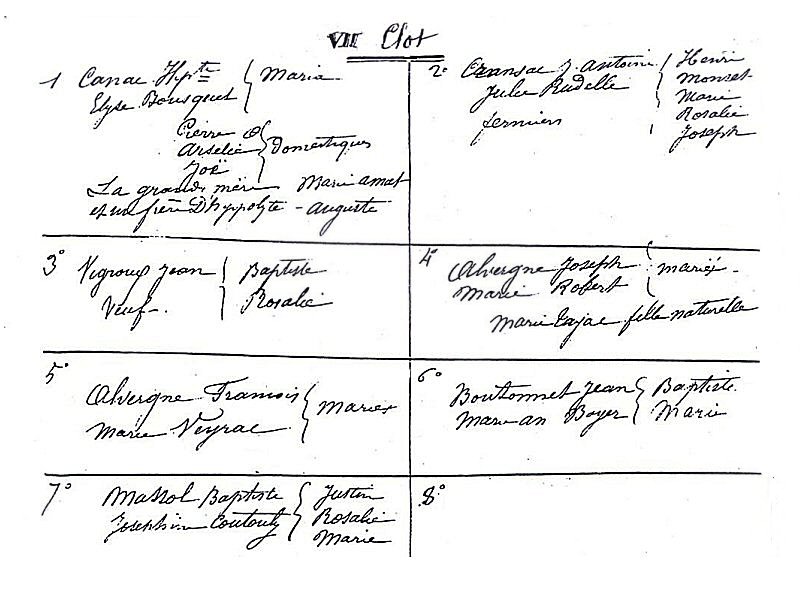 VII Clot
1 Canac Hpte { Maria
Elyse Bousquet
Pierre
Arsélie } Domestiques
Joë
La grand mère Marie amat
et un frère D'hyppolyte - auguste
2° Cransac J. Antoine { Henri
Julie Rudelle Monset
Marie
fermiers Rosalie
Joseph
3° Vigroux Jean { Baptiste
Veuf - Rosalie
4° Alvergne Joseph { mariés -
Marie Robert
Marie Cajac fille naturelle
5° Alvergne Francois { Maries
Marie Veyrac
6° Boutonnet Jean { Baptiste
Marian Boyer Marie
7° Massol Baptiste { Justin
Joséphine Coutouly Rosalie
Marie
8°